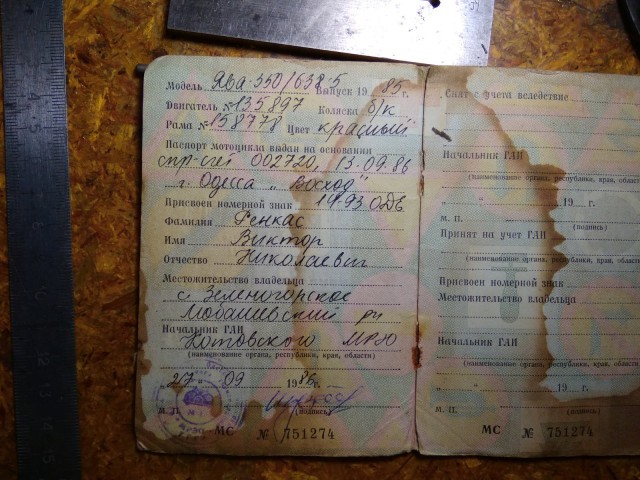 Модель Ява-350/638-5 Выпуск 19 85 г.
Двигатель № 135897 Коляска б/к
Рама № 158778 Цвет красный
Паспорт мотоцикла выдан на основании
спр-счет 002720, 13.09.86
г. Одесса "Восход"
Присвоен номерной знак 1493 ОДБ
Фамилия Ренкас
Имя Виктор
Отчество Николаевич
Местожительство владельца
с. Зеленогорское
Любашевский рн
Начальник ГАИ
Котовского МРЭО
(наименование органа, республики, края, области)
27 09 1986 г.
М. П. (подпись)
МС № 751274
Снят с учета вследствие
Начальник ГАИ
(наименование органа, республики, края, области)
" " 19 г.
М. П. (подпись)
Принят на учет ГАИ
(наименование органа, республики, края, области)
Присвоен номерной знак
Местожительство владельца
Начальник ГАИ
(наименование органа, республики, края, области)
" " 19 г.
М. П. (подпись)
МС № 751274